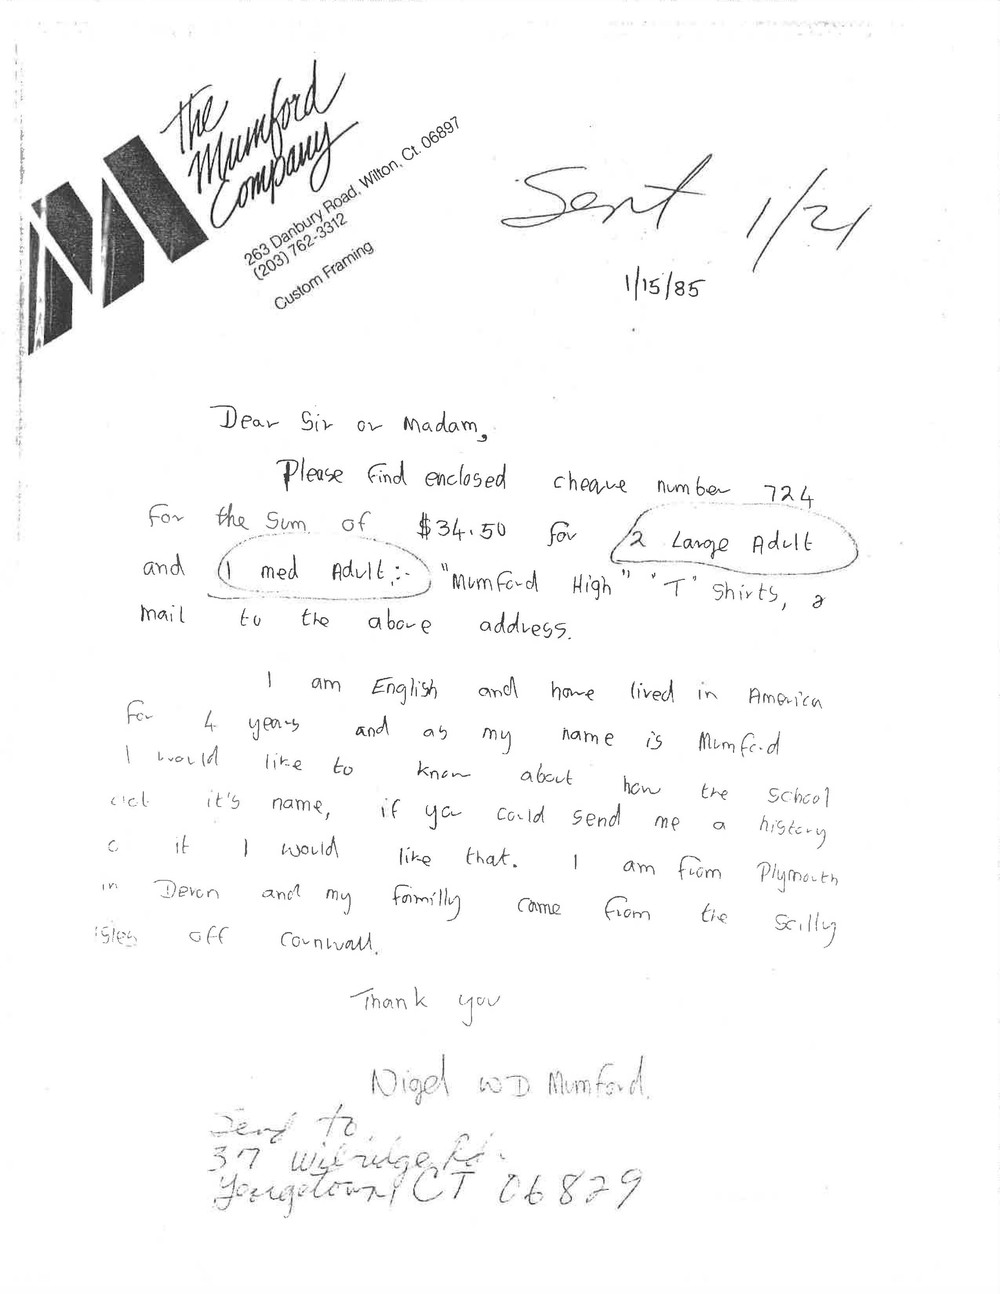 The
Mumford
Company
263 Danbury Road, Wilton, Ct. 06897
(203) 762-3312
Custom Framing
Sent 1/21
1/15/85
Dear Sir or Madam,
Please find enclosed cheque number 724
for the sum of $34.50 for 2 Large Adult
and 1 med Adult:- "Mumford High" 'T' Shirts, &
mail to the above address.
I am English and have lived in America
for 4 years and as my name is Mumford
I would like to know about how the school
it's name, if you could send me a history
it I would like that. I am from Plymouth
in Devon and my familly came from the Scilly
isles off Cornwall.
Thank you
Nigel WD Mumford.
Send to
37 Wilridge Rd.
Georgetown, CT 06829